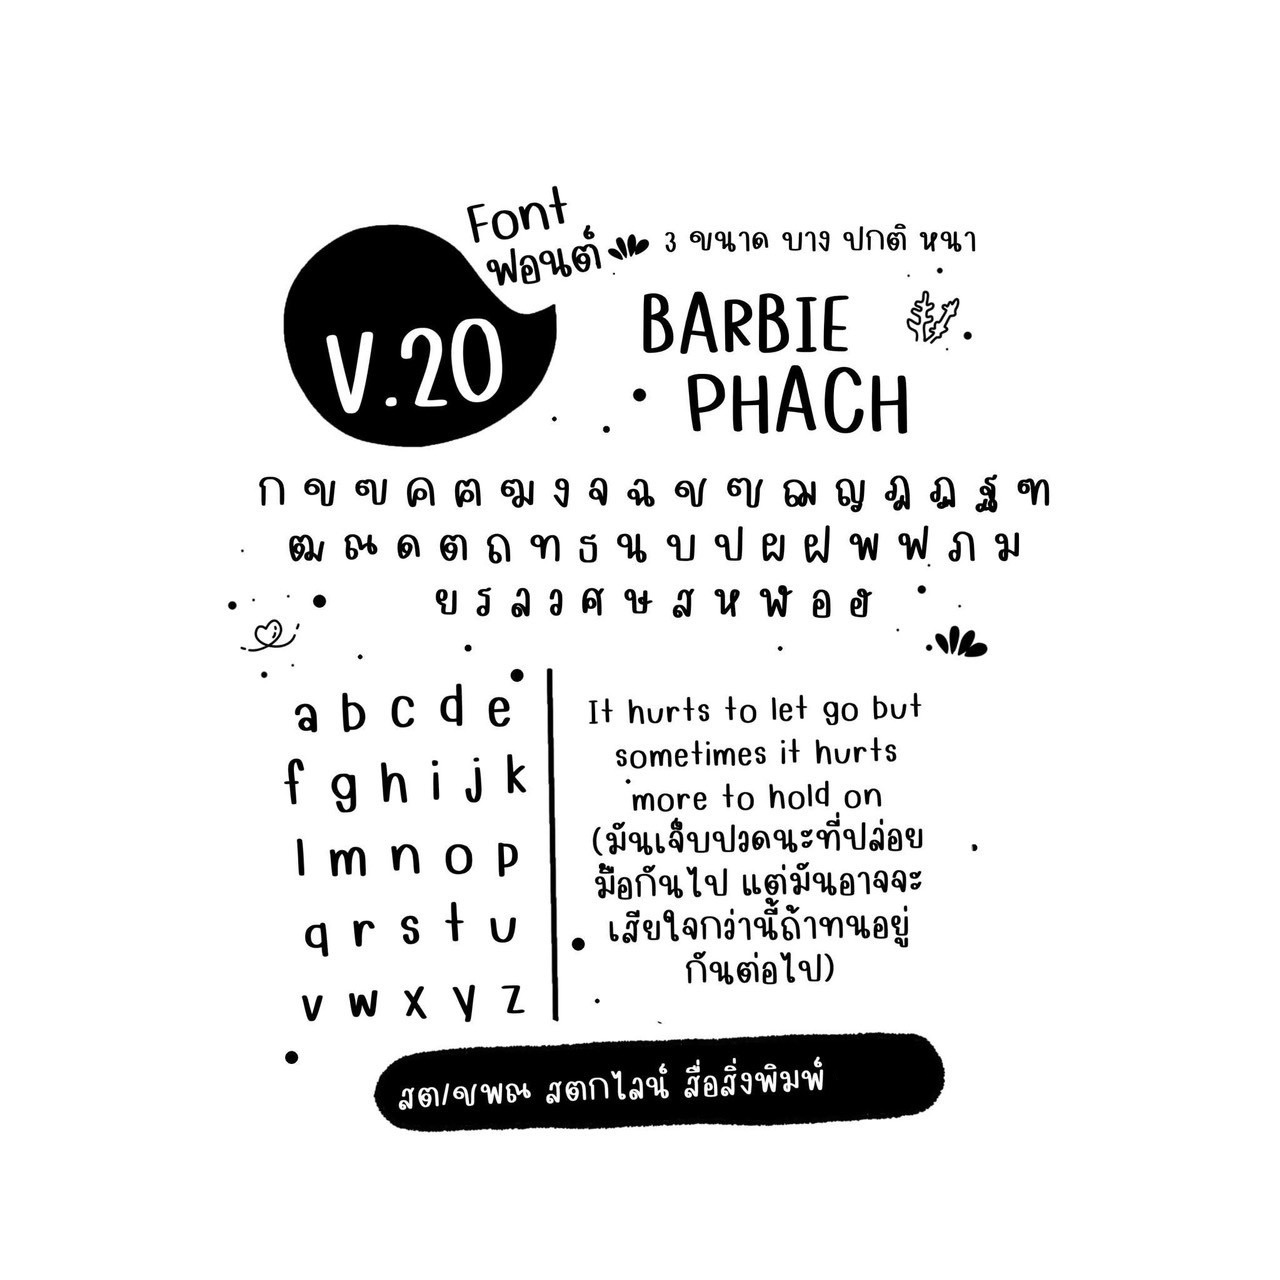 Font
ฟอนต์
3 ขนาด บาง ปกติ หนา
V.20
BARBIE
PHACH
ก ข ฃ ค ฅ ฆ ง จ ฉ ช ซ ฌ ญ ฎ ฏ ฐ ฑ
ฒ ณ ด ต ถ ท ธ น บ ป ผ ฝ พ ฟ ภ ม
ย ร ล ว ศ ษ ส ห ฬ อ ฮ
a b c d e
f g h i j k
l m n o p
q r s t u
v w x y z
It hurts to let go but
sometimes it hurts
more to hold on
(มันเจ็บปวดนะที่ปล่อย
มือกันไป แต่มันอาจจะ
เสียใจกว่านี้ถ้าทนอยู่
กันต่อไป)
สต/ชพณ สตกไลน์ สื่อสิ่งพิมพ์